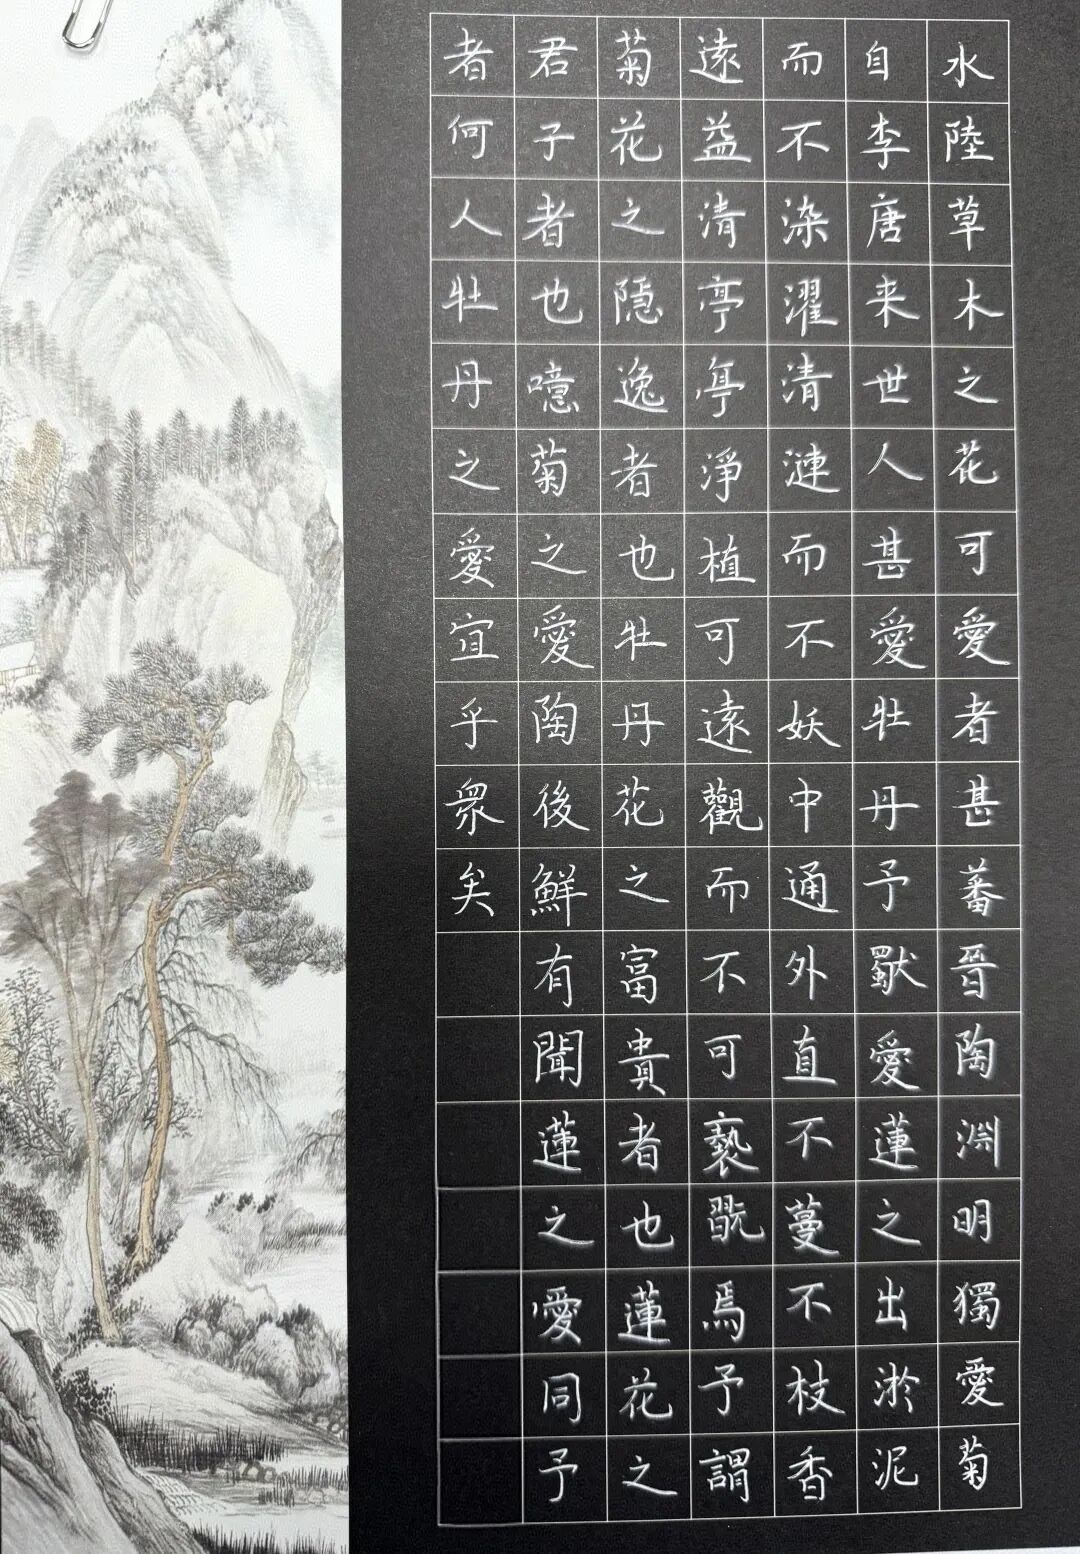 水陸草木之花可愛者甚蕃晉陶淵明獨愛菊
自李唐来世人甚愛牡丹予獨愛蓮之出淤泥
而不染濯清漣而不妖中通外直不蔓不枝香
遠益清亭亭淨植可遠觀而不可褻翫焉予謂
菊花之隱逸者也牡丹花之富貴者也蓮花之
君子者也噫菊之愛陶後鮮有聞蓮之愛同予
者何人牡丹之愛宜乎衆矣